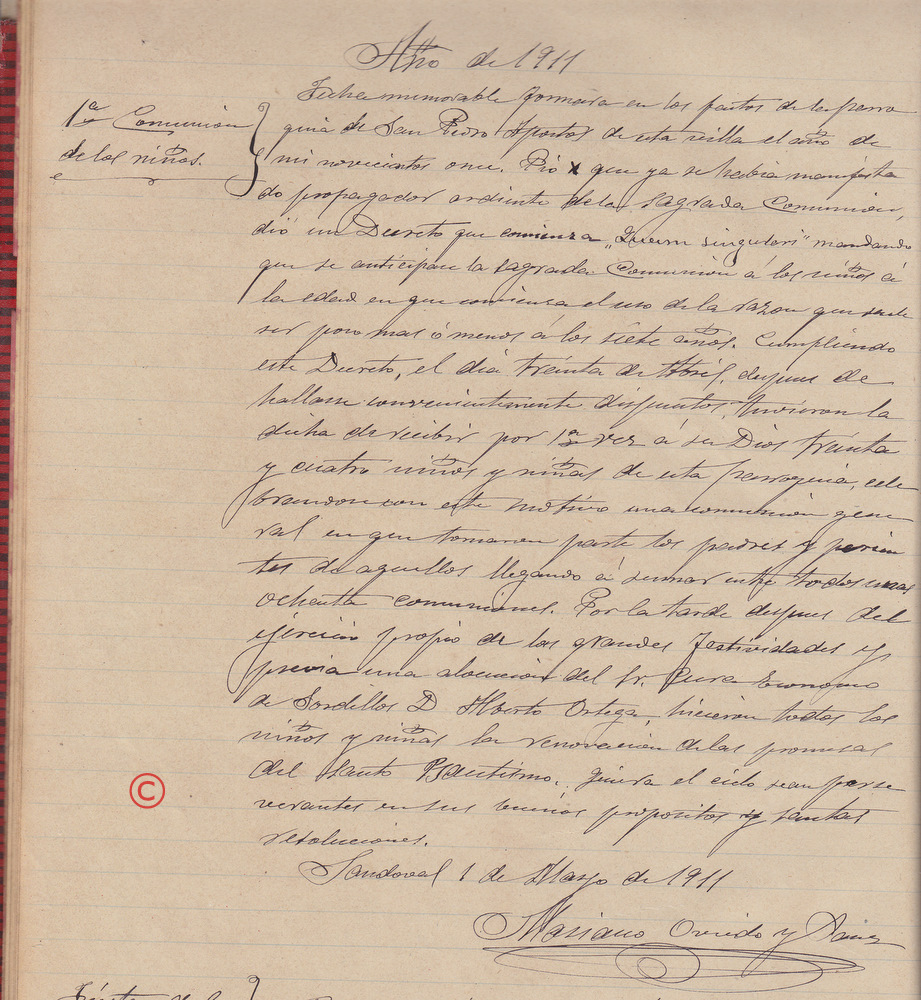 Año de 1911
1ª Comunion
de los niños.
Fecha memorable formara en los fastos de la parro
quia de San Pedro Apostol de esta villa el año de
mil novecientos once. Pio X que ya se habia manifesta
do propagador ardiente de la Sagrada Comunion,
dió un Decreto que comienza "Quam singulari" mandando
que se anticipase la sagrada Comunion á los niños á
la edad en que comienza el uso de la razon que suele
ser poco mas ó menos á los siete años. Cumpliendo
este Decreto, el dia treinta de Abril, despues de
hallarse convenientemente dispuestos, tuvieron la
dicha de recibir por 1ª vez á su Dios treinta
y cuatro niños y niñas de esta parroquia, cele
brandose con este motivo una comunion gene
ral en que tomaron parte los padres y parien
tes de aquellos llegando á sumar entre todos unas
ochenta comuniones. Por la tarde despues del
ejercicio propio de las grandes festividades y
previa una alocucion del Sr. Cura Economo
de Sordillos D. Alberto Ortega, hicieron todos los
niños y niñas la renovacion de las promesas
del Santo Bautismo. Quiera el cielo sean perse
verantes en sus buenos propositos y santas
resoluciones.
Sandoval 1 de Mayo de 1911
Mariano Oviedo y
©